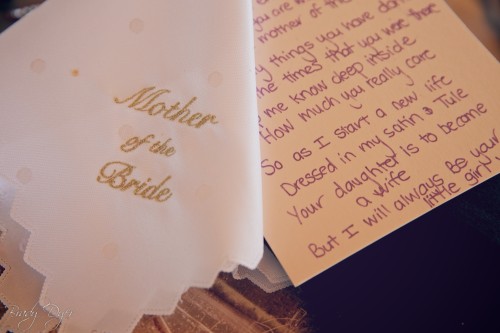 Mother
of the
Bride
you are
mother of the
things you have
the times that you were there
me know deep inside
How much you really care
So as I start a new life
Dressed in my satin & Tule
Your daughter is to become
a wife
But I will always be your
little girl
Brady Dyer